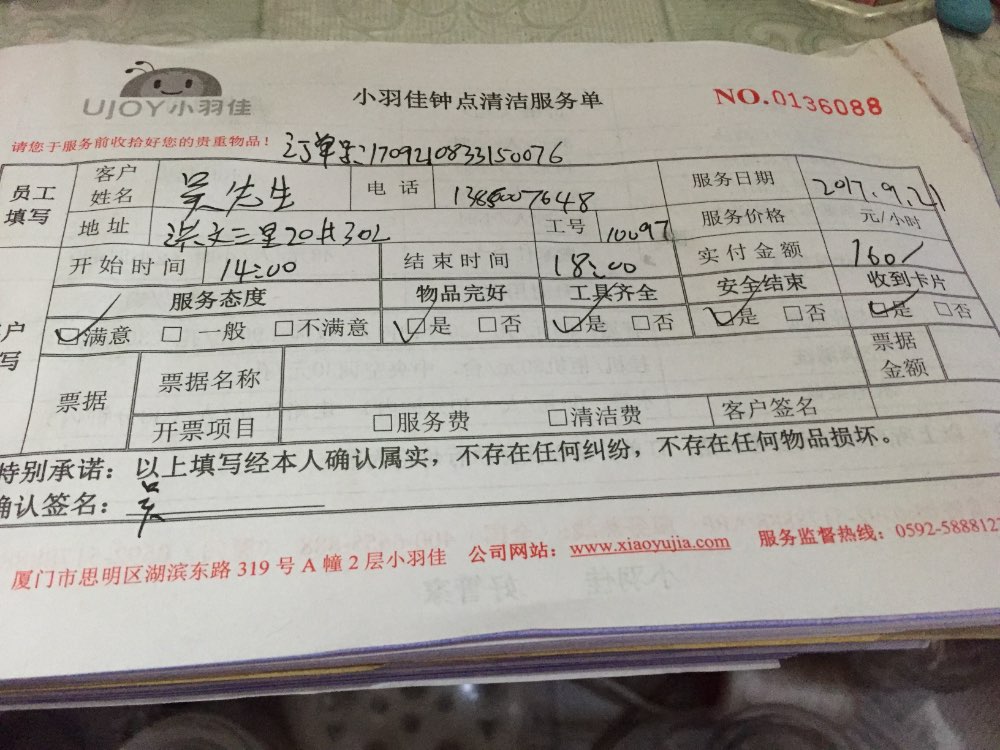 UJOY小羽佳
小羽佳钟点清洁服务单
NO.0136088
请您于服务前收拾好您的贵重物品！
订单号:170921083315​0076
员工填写 客户姓名 吴先生 电话 1385007648 服务日期 2017.9.21
地址 洪文三里20#302 工号 10097 服务价格 元/小时
开始时间 14:00 结束时间 18:00 实付金额 160/
服务态度 物品完好 工具齐全 安全结束 收到卡片
户写 ☑满意 □一般 □不满意 ☑是 □否 ☑是 □否 ☑是 □否 ☑是 □否
票据 票据名称 票据金额
开票项目 □服务费 □清洁费 客户签名
特别承诺：以上填写经本人确认属实，不存在任何纠纷，不存在任何物品损坏。
确认签名： 吴
厦门市思明区湖滨东路 319 号 A 幢 2 层小羽佳 公司网站：www.xiaoyujia.com 服务监督热线：0592-5888127
小羽佳 好管家